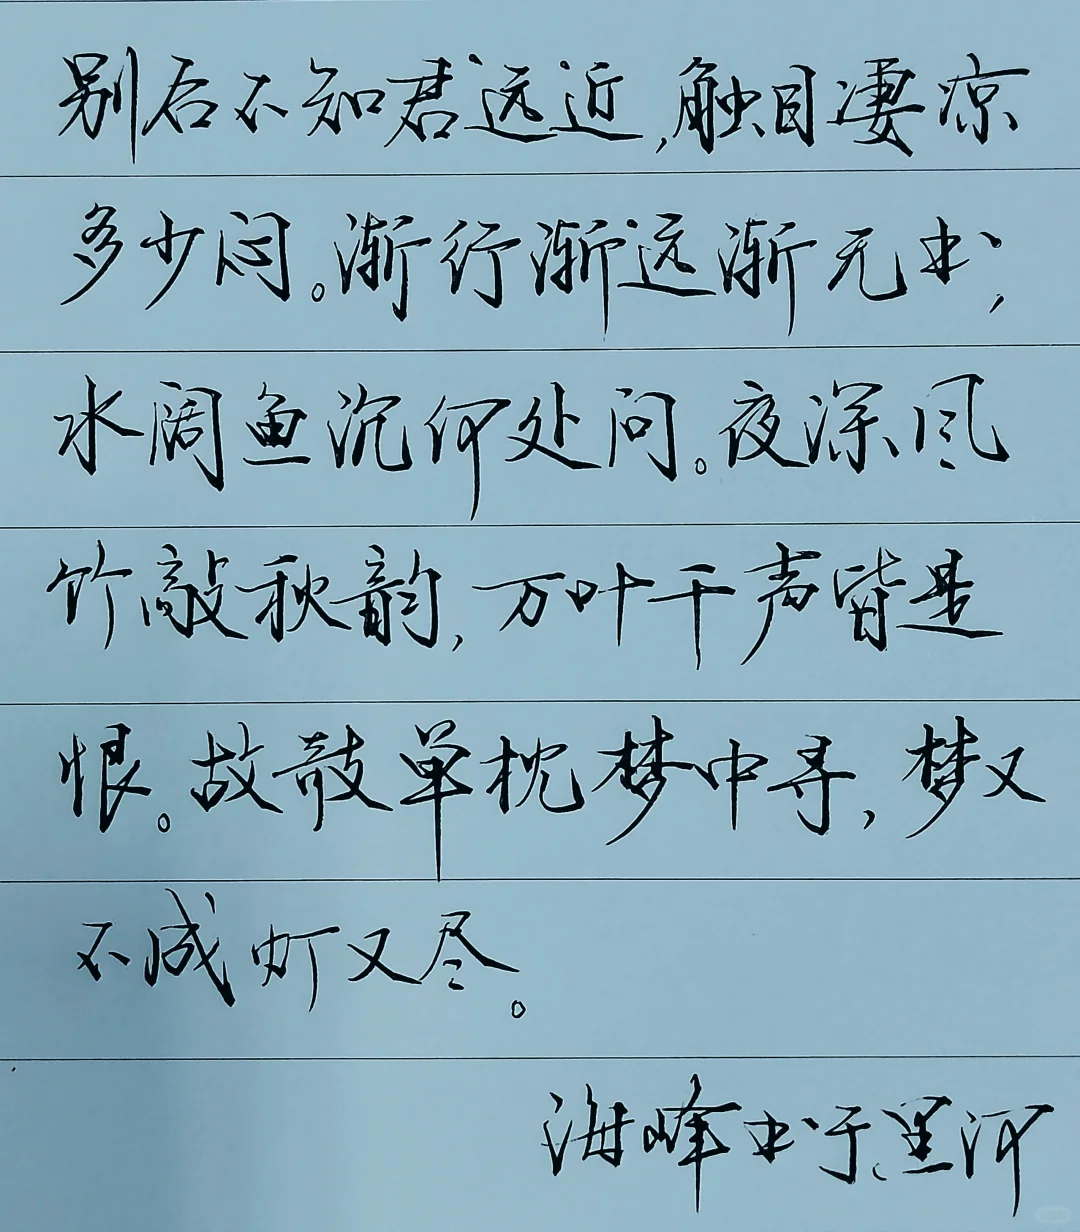 别后不知君远近,触目凄凉
多少闷。渐行渐远渐无书,
水阔鱼沉何处问。夜深风
竹敲秋韵,万叶千声皆是
恨。故攲单枕梦中寻,梦又
不成灯又尽。
海峰书于黑河